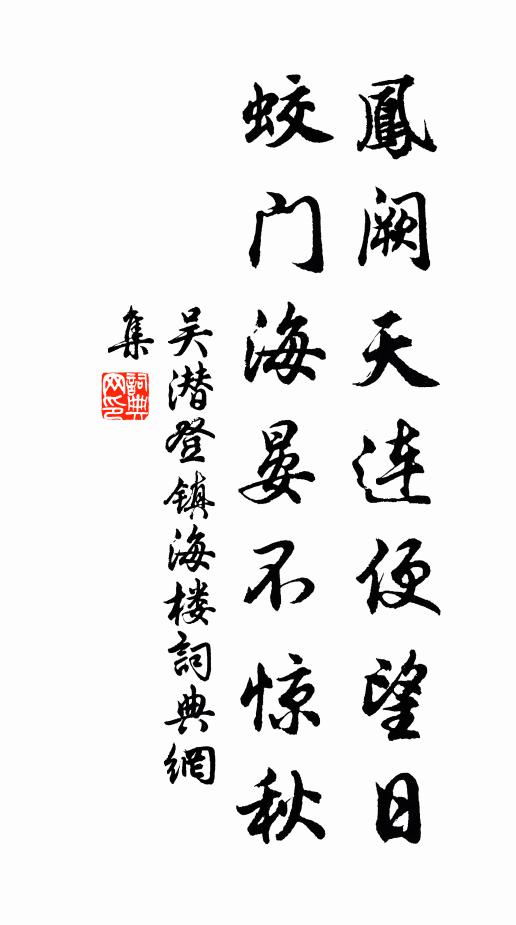 鳳阙天连便望日
蛟门海晏不惊秋
吴潜登镇海楼詞典網
集
詞典
网印